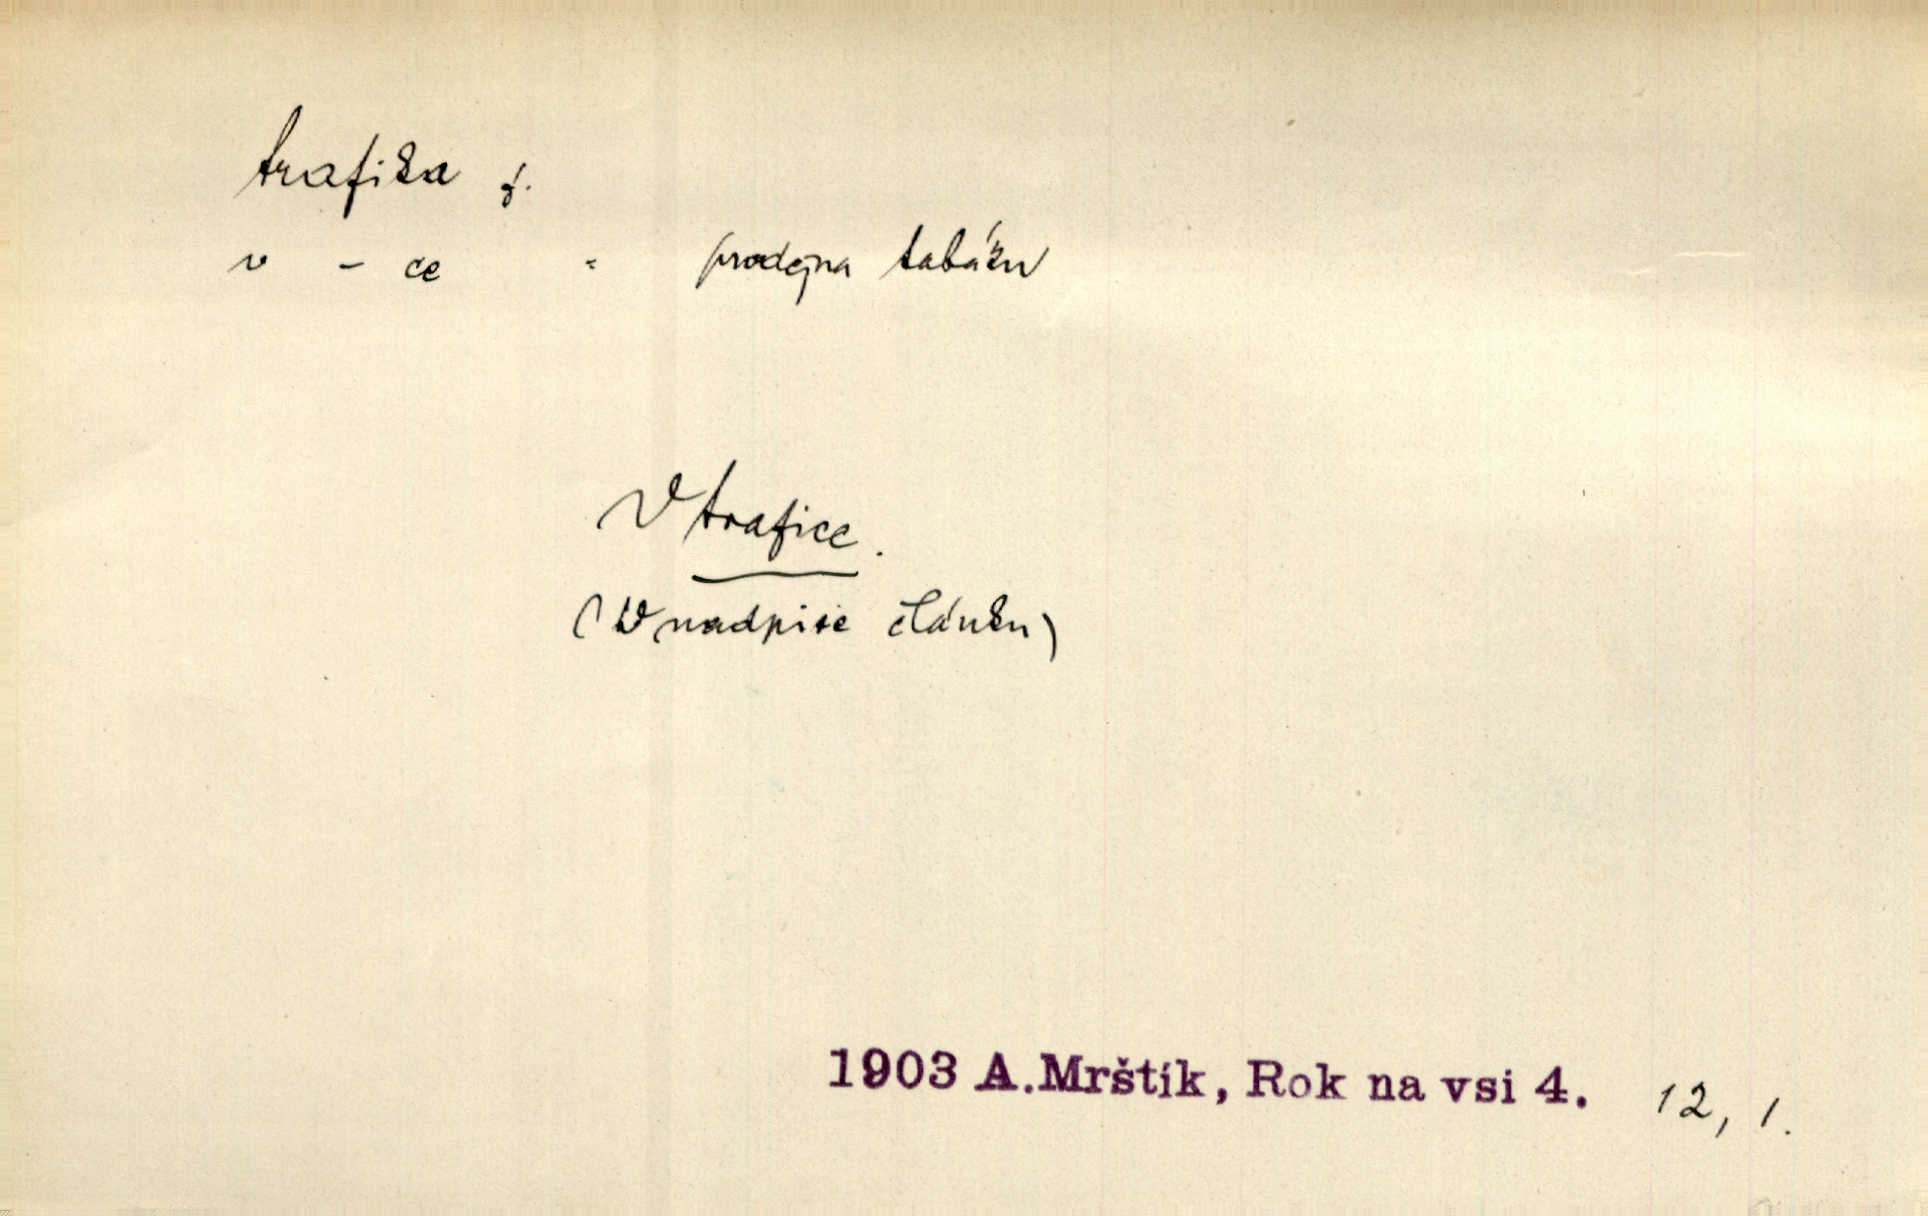 trafika f.
v - ce = prodejna tabáku
V trafice.
(V nadpise článku)
1903 A.Mrštík, Rok na vsi 4. 12, 1.